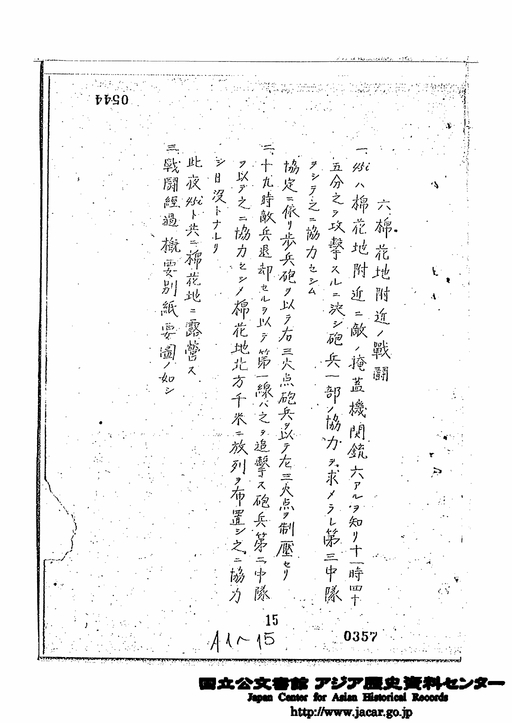 0544
六、棉花地附近ノ戰闘
一、45iハ棉花地附近ニ敵ノ掩蓋機関銃六アルヲ知リ十一時四十
五分之ヲ攻撃スルニ決シ砲兵一部ノ協力ヲ求メラレ第三中隊
ヲシテ之ニ協力セシム
協定ニ依リ歩兵砲ヲ以テ右三火点砲兵ヲ以テ左三火点ヲ制壓セリ
二、十九時敵兵退却セルヲ以テ第一線ハ之ヲ追撃ス砲兵第二中隊
ヲ以テ之ニ協力セシメ棉花地北方千米ニ放列ヲ布置シ之ニ協力
シ日没トナレリ
此夜45iト共ニ棉花地ニ露營ス
三、戰闘經過概要別紙要圖ノ如シ
15
A1~15
0357
国立公文書館 アジア歴史資料センター
Japan Center for Asian Historical Records
http://www.jacar.go.jp